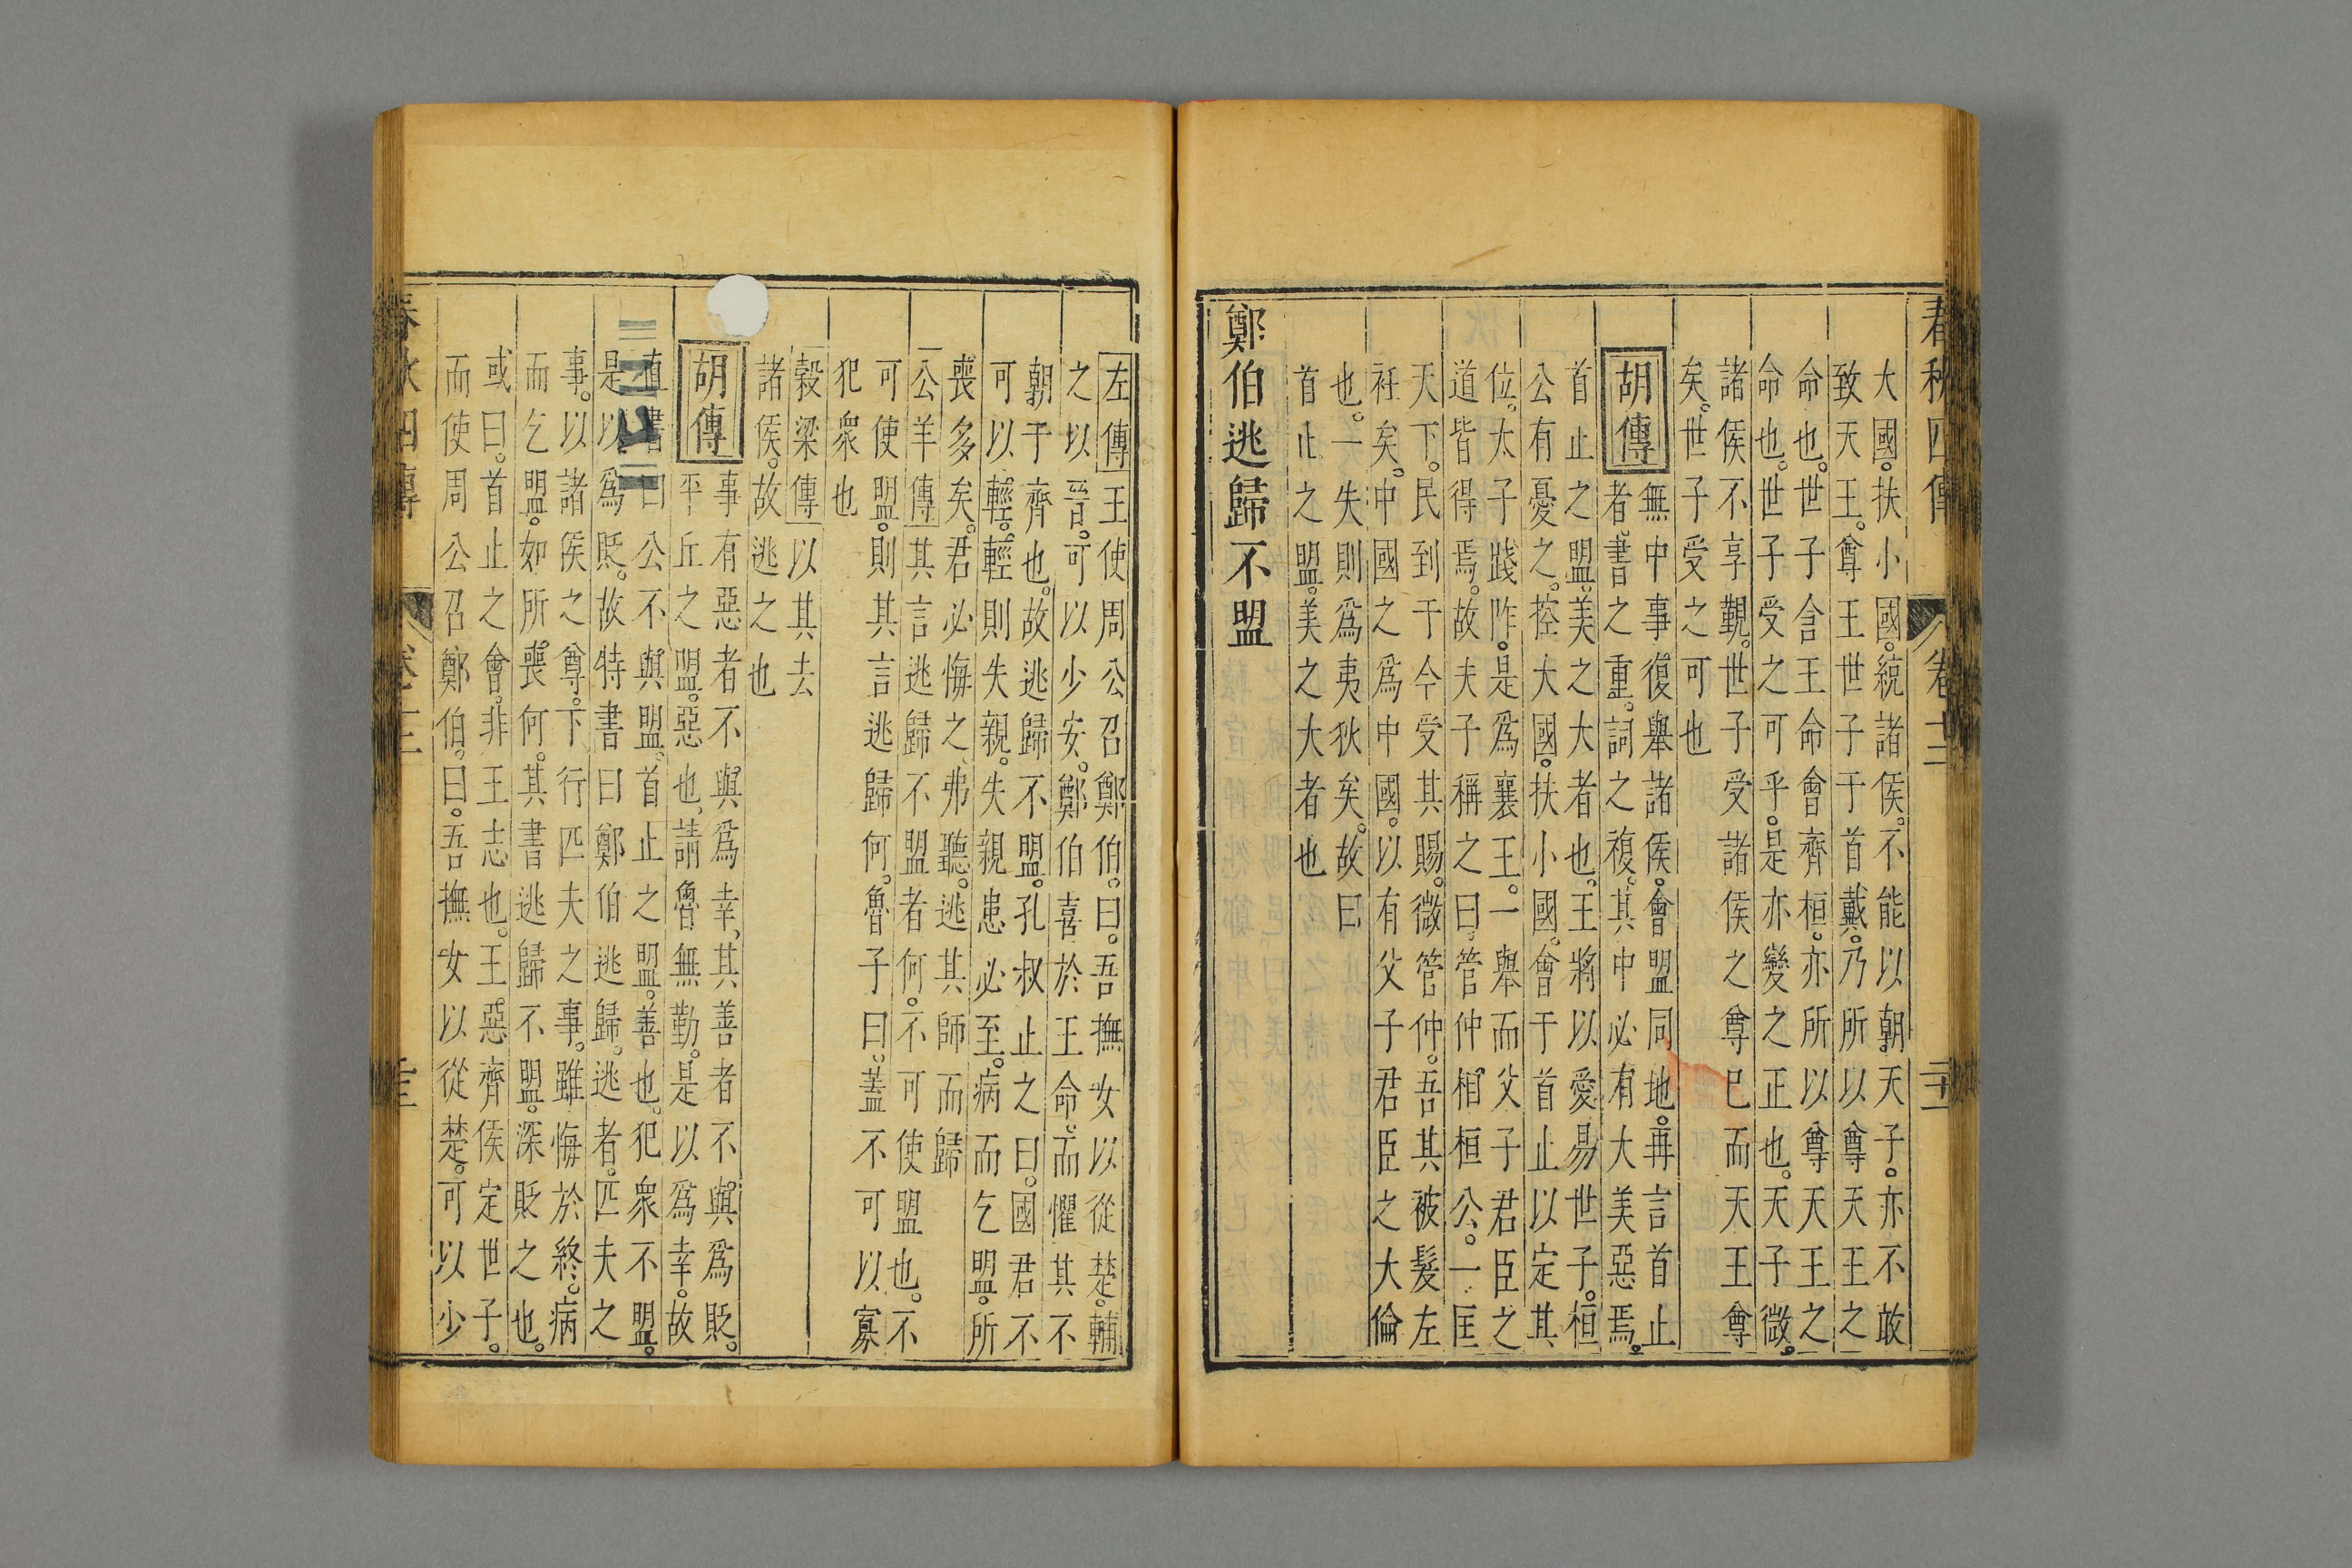 春秋四傳
卷十二
大國扶小國統諸侯不能以朝天子亦不敢
致天王尊王世子于首戴乃所以尊天王之
命也世子含王命會齊桓亦所以尊天王之
命也世子受之可乎是亦變之正也天子微
諸侯不享覲世子受諸侯之尊已而天王尊
矣世子受之可也
胡傳
無中事復舉諸侯會盟同地再言首止
者書之重詞之複其中必有大美惡焉
首止之盟美之大者也王將以愛易世子桓
公有憂之控大國扶小國會于首止以定其
位太子踐阼是為襄王一舉而父子君臣之
道皆得焉故夫子稱之曰管仲相桓公一匡
天下民到于今受其賜微管仲吾其被髮左
衽矣中國之為中國以有父子君臣之大倫
也一失則為夷狄矣故曰
首止之盟美之大者也
鄭伯逃歸不盟
左傳王使周公召鄭伯曰吾撫女以從楚輔
之以晉可以少安鄭伯喜於王命而懼其不
朝于齊也故逃歸不盟孔叔止之曰國君不
可以輕輕則失親失親患必至病而乞盟所
喪多矣君必悔之弗聽逃其師而歸
公羊傳其言逃歸不盟者何不可使盟也不
可使盟則其言逃歸何魯子曰蓋不可以寡
犯眾也
穀梁傳以其去
諸侯故逃之也
胡傳
事有惡者不與為幸其善者不與為貶
平丘之盟惡也請魯無勤是以為幸故
直書曰公不與盟首止之盟善也犯眾不盟
是以為貶故特書曰鄭伯逃歸逃者匹夫之
事以諸侯之尊下行匹夫之事雖悔於終病
而乞盟如所喪何其書逃歸不盟深貶之也
或曰首止之會非王志也王惡齊侯定世子
而使周公召鄭伯曰吾撫女以從楚可以少
春秋四傳